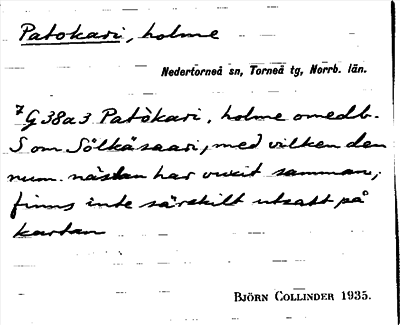 Patokari, holme
Nedertorneå sn, Torneå tg, Norrb. län.
7 G 38a3 Patòkari, holme omedb.
S om Sölkäsaari, med vilken den
num. nästan har vuxit samman;
finns inte särskilt utsatt på
kartan
BJÖRN COLLINDER 1935.